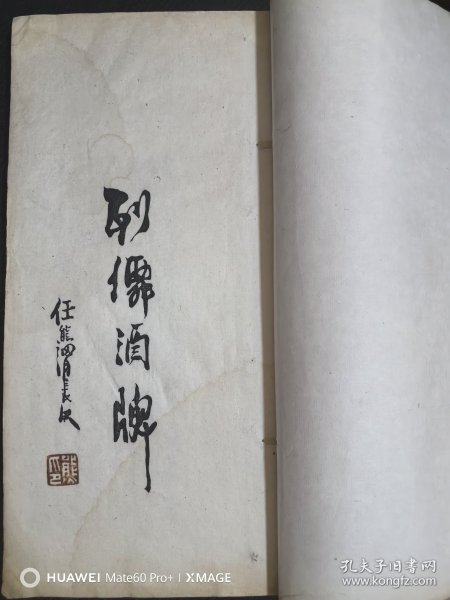 列僊酒牌
任熊渭長
HUAWEI Mate60 Pro+ | XMAGE
孔夫子旧书网
www.kongfz.com